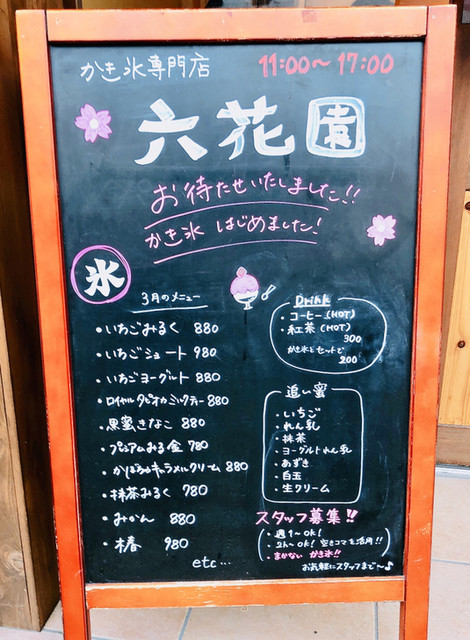 かき氷専門店 11:00〜17:00
六花園
お待たせいたしました!!
かき氷 はじめました!
氷
3月のメニュー
・いちごみるく 880
・いちごシュート 980
・いちごヨーグルト 880
・ロイヤルタピオカミルクティー 880
・黒蜜きなこ 880
・プレミアムみる金 780
・かぼちゃキャラメルクリーム 880
・抹茶みるく 780
・みかん 880
・椿 980
etc...
Drink
・コーヒー(HOT)
・紅茶(HOT)
300
かき氷とセットで
200
追い蜜
・いちご
・れん乳
・抹茶
・ヨーグルトれん乳
・あずき
・白玉
・生クリーム
スタッフ募集!!
・週1〜OK!
・2h〜OK! 空きコマを活用!!
・まかない かき氷!!
お気軽にスタッフまで〜♪